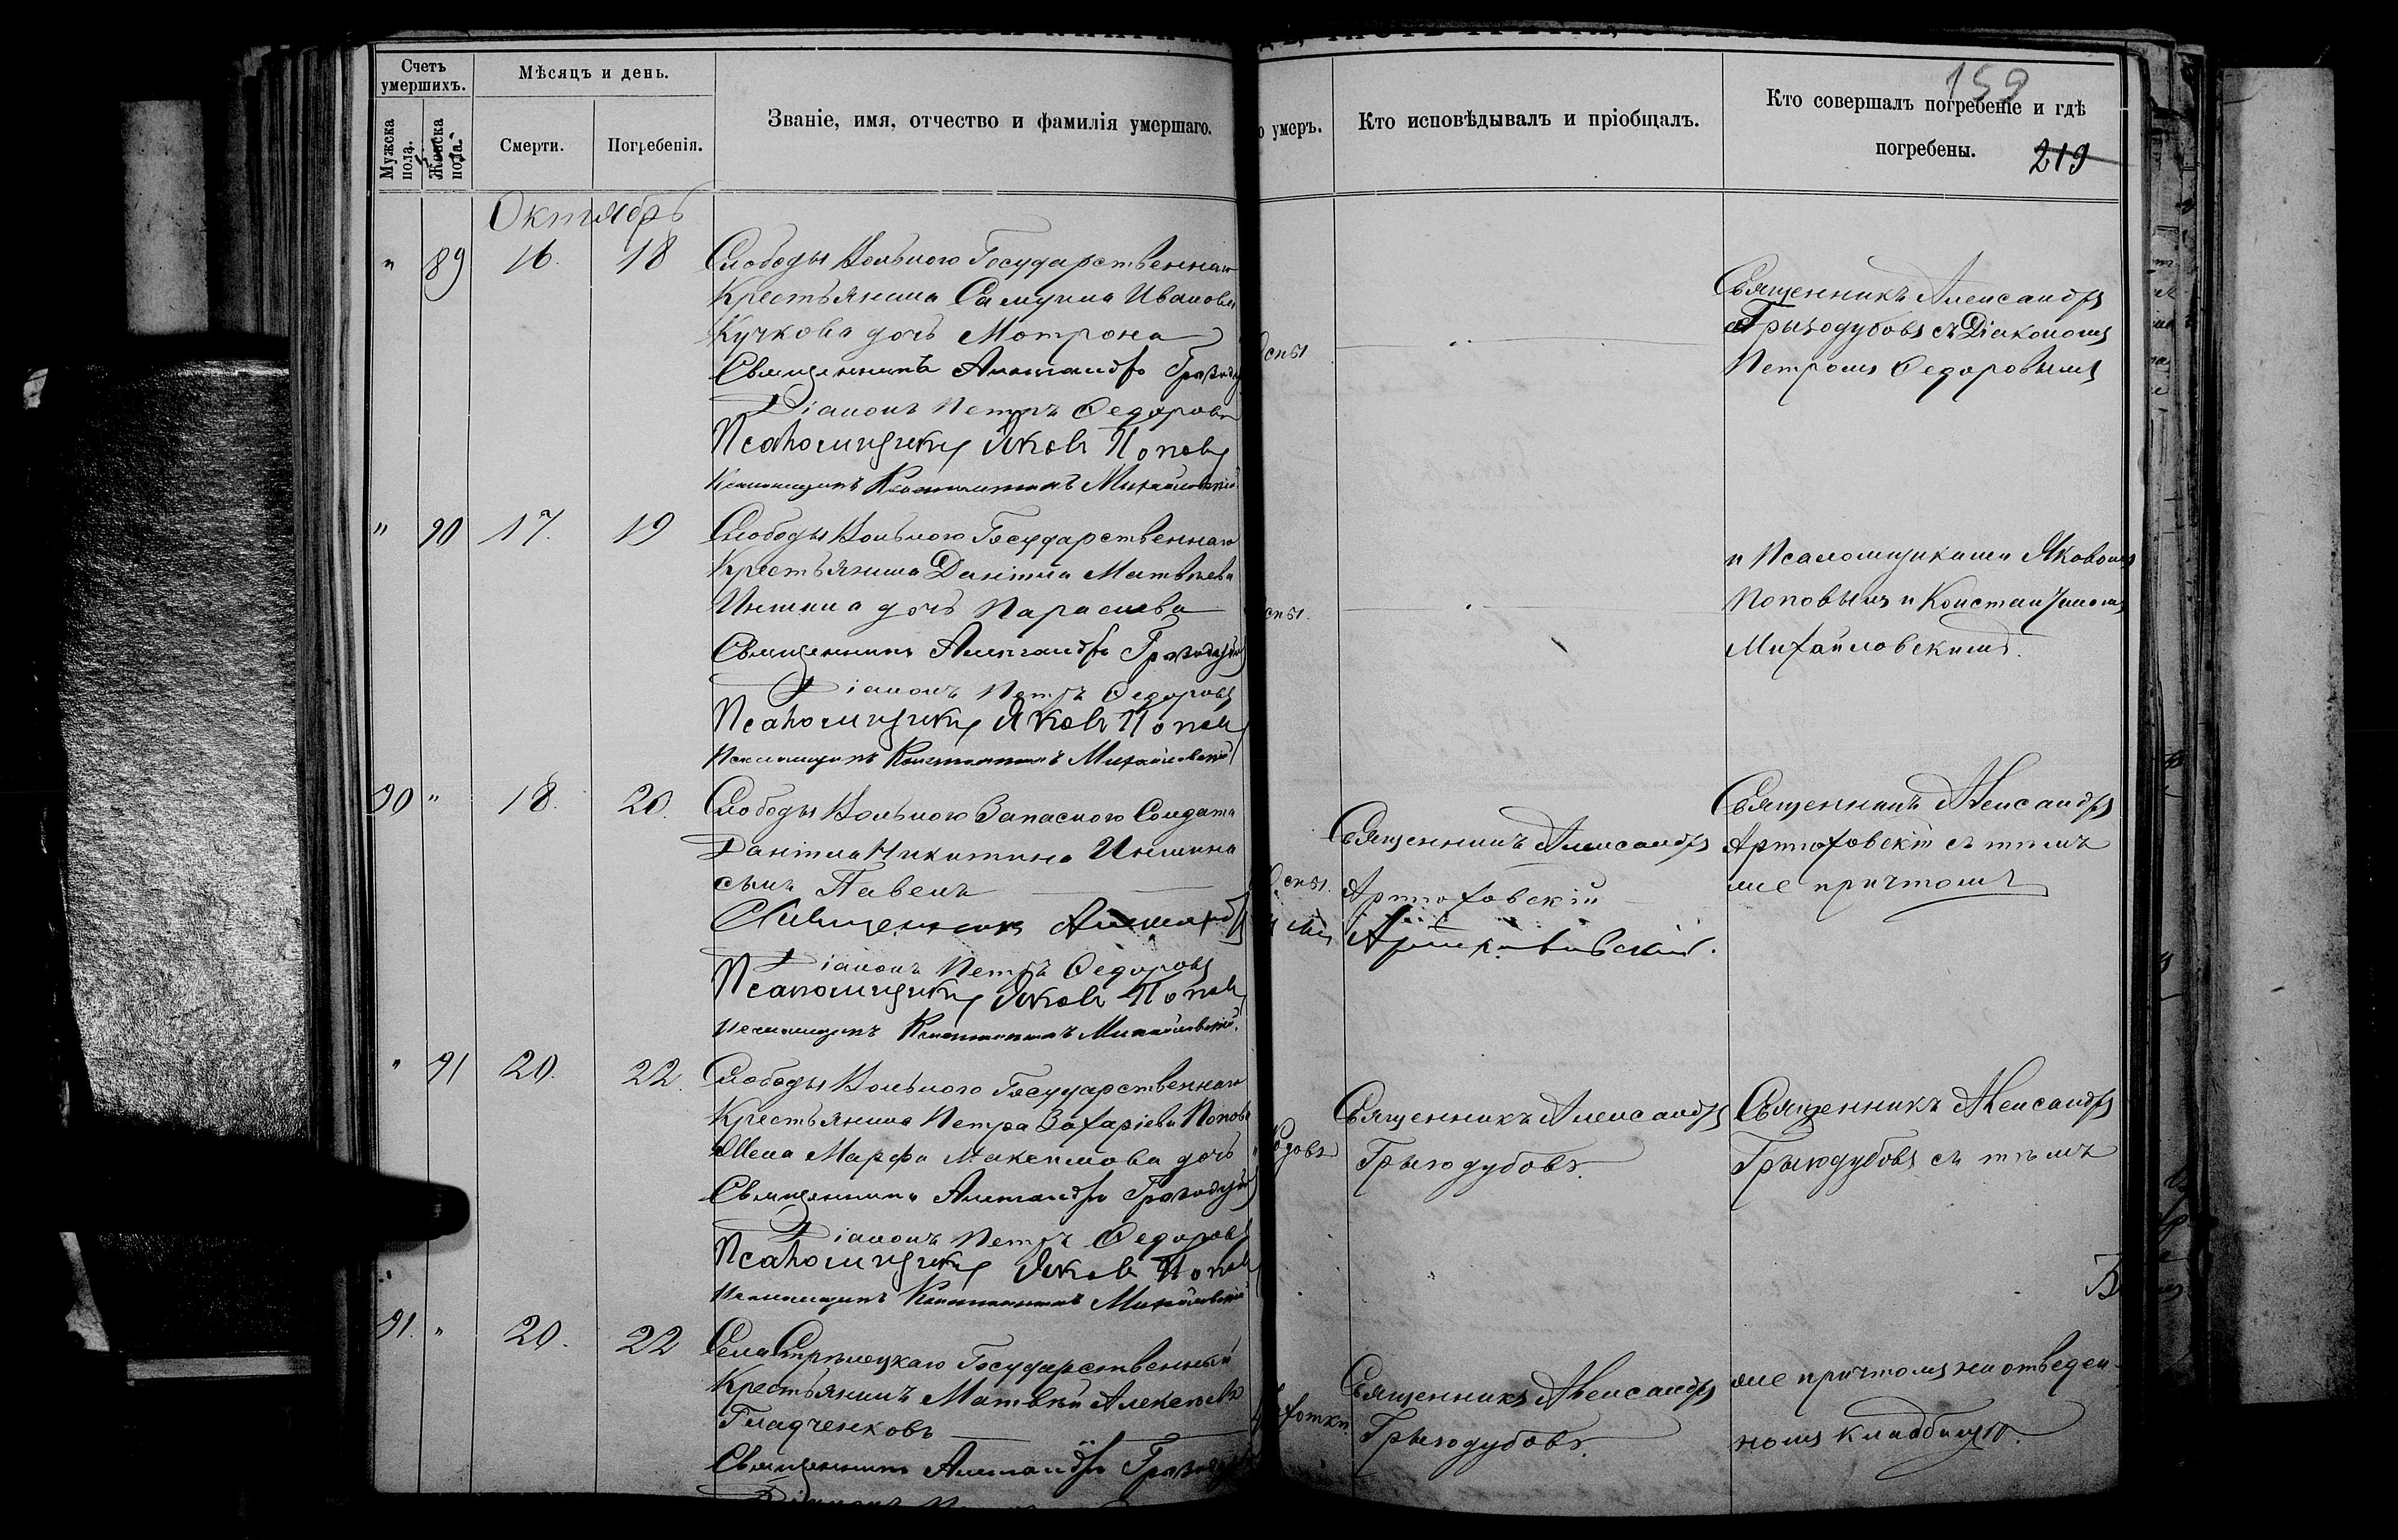 Счетъ умершихъ.
Мѣсяцъ и день.
Мужска пола.
Женска пола.
Смерти.
Погребенія.
Званіе, имя, отчество и фамилія умершаго.
о умеръ.
Кто исповѣдывалъ и пріобщалъ.
Кто совершалъ погребеніе и гдѣ
погребены.
159
219
Октябрь
" 89 16. 18
Слободы Вольного Государственнаго
Крестьянина Самуила Иванова
Кучкова дочь Мотрона
Священникъ Александръ
Діаконъ Петръ Федоровъ
Псаломщикъ Яковъ Поповъ
Псаломщикъ Константинъ Михайловскій
оспы
Священникъ Александръ
Грызодубовъ съ Діакономъ
Петромъ Федоровымъ
" 90 17. 19
Слободы Вольного Государственнаго
Крестьянина Даніила Матвѣева
дочь Параскева
Священникъ Александръ Грызодубовъ
Діаконъ Петръ Федоровъ
Псаломщикъ Яковъ Поповъ
Псаломщикъ Константинъ Михайловскій
оспы.
и Псаломщиками Яковомъ
Поповымъ и Константиномъ
Михайловскимъ.
90 " 18. 20.
Слободы Вольного Запасного Солдата
Даніила Никитина
сынъ Павелъ
Священникъ Александръ
Діаконъ Петръ Федоровъ
Псаломщикъ Яковъ Поповъ
Псаломщикъ Константинъ Михайловскій.
оспы.
Священникъ Александръ
Артюховскій
Артюховскій.
Священникъ Александръ
Артюховскій съ тѣмъ
же причтомъ
" 91 20. 22.
Слободы Вольного Государственнаго
Крестьянина Петра Захаріева Попова
Жена Марфа Максимова дочь
Священникъ Александръ Грызодубовъ
Діаконъ Петръ Федоровъ
Псаломщикъ Яковъ Поповъ
Псаломщикъ Константинъ Михайловскій
родовъ
Священникъ Александръ
Грызодубовъ.
Священникъ Александръ
Грызодубовъ съ тѣмъ
91. " 20. 22
Села Стрѣлецкаго Государственный
Крестьянинъ Матвѣй Алексѣевъ
Гладченковъ
Священникъ Александръ
чахотки.
Священникъ Александръ
Грызодубовъ.
же причтомъ на отведен-
номъ кладбищѣ.